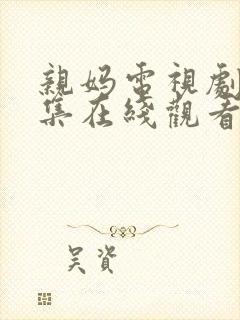 親妈電視劇
集在綫觀看
吴資